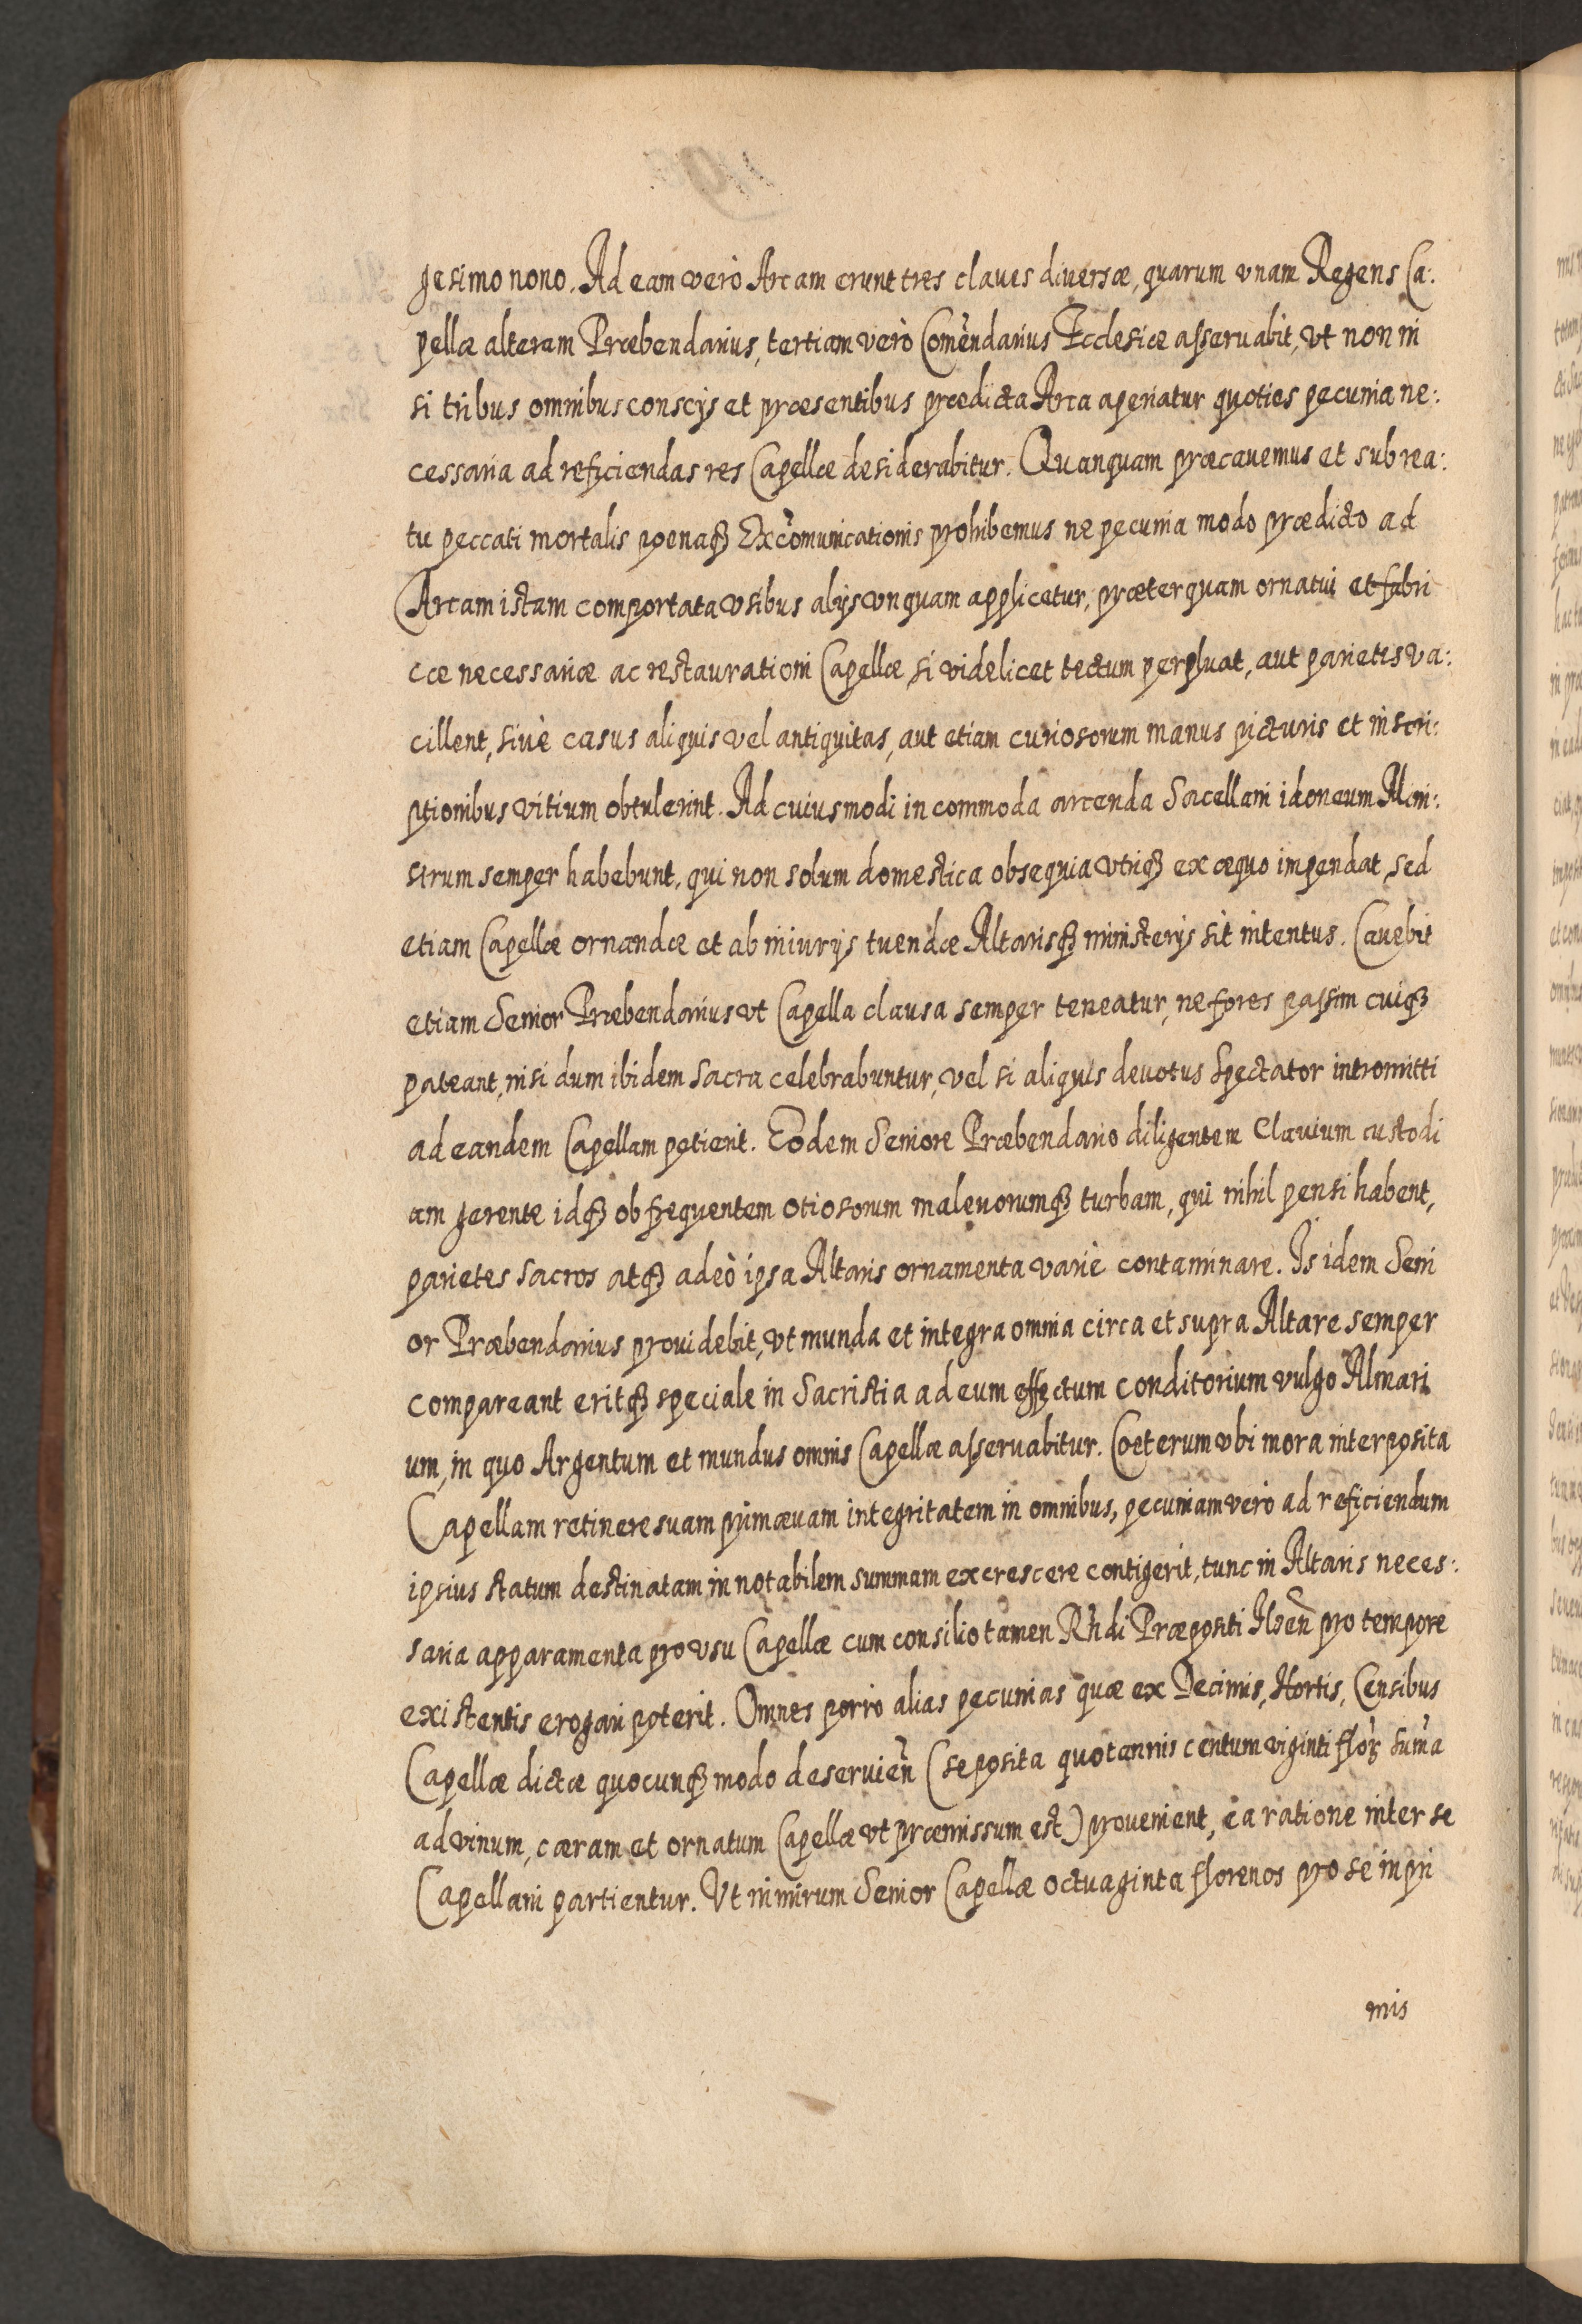 gesimo nono. Ad eam verò Arcam erunt tres claues diuersæ, quarum vnam Regens Ca:
pellæ alteram Præbendarius, tertiam verò Com̃endarius Ecclesiæ asseruabit, vt non ni
si tribus omnibus conscijs et præsentibus prædicta Arca aperiatur quoties pecunia ne:
cessaria ad reficiendas res Capellæ desiderabitur. Quanquam præcauemus et sub rea:
tu peccati mortalis poenaqꝫ Excõmunicationis prohibemus ne pecunia modo prædicto ad
Arcam istam comportata vsibus alijs vnquam applicetur, præterquam ornatui et fabri
cæ necessariæ ac restaurationi Capellæ, si videlicet tectum perpluat, aut parietes va:
cillent, siuè casus aliquis vel antiquitas, aut etiam curiosorum manus picturis et inscri:
ptionibus vitium obtulerint. Ad cuiusmodi incommoda arcenda Sacellani idoneum Mini:
strum semper habebunt, qui non solum domestica obsequia vtriqꝫ ex æquo impendat, sed
etiam Capellæ ornandæ et ab iniurijs tuendæ Altarisqꝫ ministerijs sit intentus. Cauebit
etiam Senior Præbendarius vt Capella clausa semper teneatur, ne fores passim cuiqꝫ
pateant, nisi dum ibidem Sacra celebrabuntur, vel si aliquis deuotus Spectator intromitti
ad eandem Capellam petierit. Eodem Seniore Præbendario diligentem Clauium custodi
am gerente idqꝫ ob frequentem otiosorum maleuorumqꝫ turbam, qui nihil pensi habent,
parietes Sacros atqꝫ adeò ipsa Altaris ornamenta variè contaminare. Is idem Seni
or Præbendarius prouidebit, vt munda et integra omnia circa et supra Altare semper
compareant eritqꝫ speciale in Sacristia ad eum effectum conditorium vulgo Almari
um, in quo Argentum et mundus omnis Capellæ asseruabitur. Coeterum vbi mora interposita
Capellam retinere suam primæuam integritatem in omnibus, pecuniam verò ad reficiendum
ipsius statum destinatam in notabilem summam excrescere contigerit, tunc in Altaris neces:
saria apparamenta pro vsu Capellæ cum consilio tamen Rñdi Præpositi Ilzen̄ pro tempore
existentis erogari poterit. Omnes porrò alias pecunias quæ ex Decimis, Hortis, Censibus
Capellæ dictæ quocunqꝫ modo deseruien̄ (seposita quotannis centum viginti florꝫ sum̃a
ad vinum, cæram et ornatum Capellæ vt præmissum est) prouenient, ea ratione inter se
Capellani partientur. Vt nimirum Senior Capellæ octuaginta florenos pro se in pri
mis